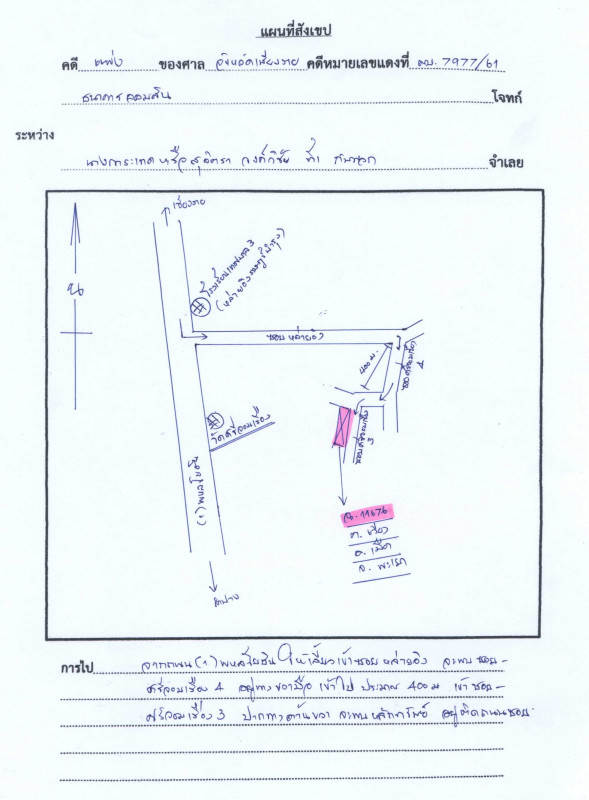 แผนที่สังเขป
คดี แพ่ง ของศาล จังหวัดเชียงราย คดีหมายเลขแดงที่ ผบ. 7977/61
ธนาคารออมสิน โจทก์
ระหว่าง
จำเลย
เชียงราย
น
โรงเรียนเทศบาล 3
ซอย หล่ายอิง
400 ม.
4
3
วัดศรีจอมเรือง
(1) พหลโยธิน
ฉ. 11676
ต. เวียง
อ. เมือง
จ. พะเยา
ลำปาง
การไป จากถนน (1) พหลโยธิน ให้เลี้ยวเข้าซอย หล่ายอิง จะพบ ซอย-
ศรีจอมเรือง 4 อยู่ทางขวามือ เข้าไป ประมาณ 400 ม เข้า ซอย-
ศรีจอมเรือง 3 ปากทางด้านขวา จะพบ หลักทรัพย์ อยู่ติดถนนซอย